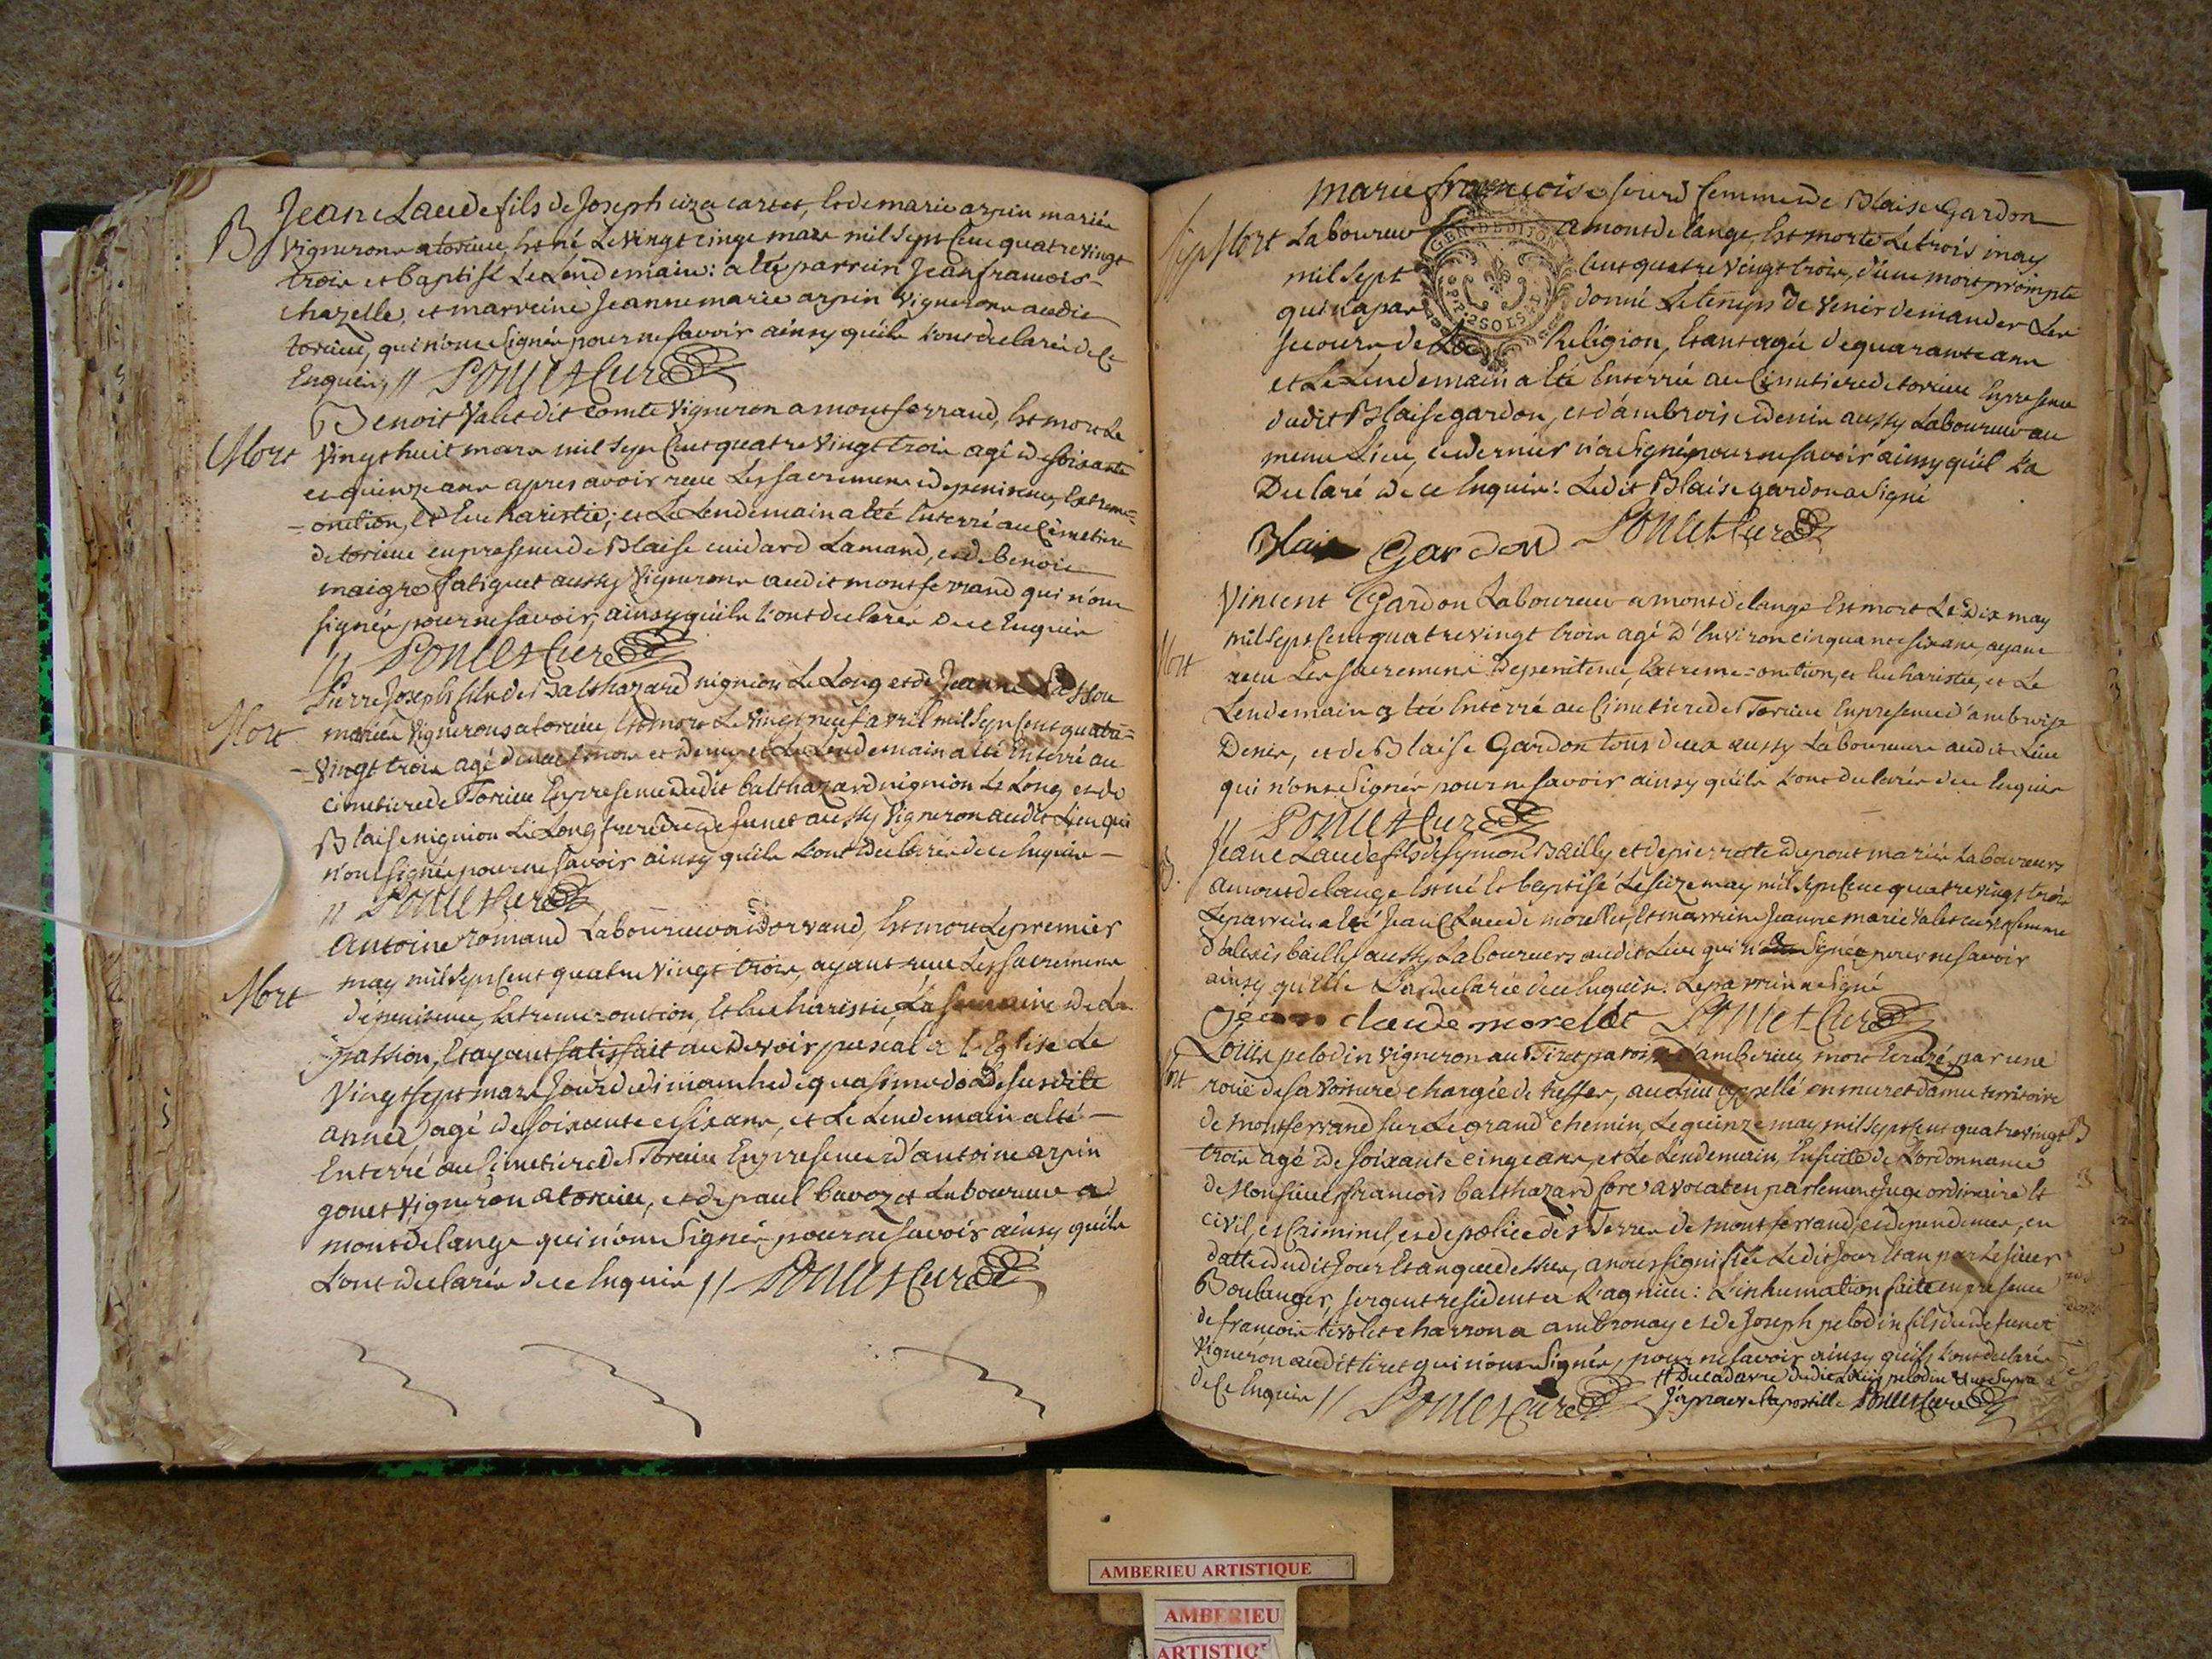 B Jean Claude fils de Joseph cizacartet, Et de marie arpin mariés
vignerons a torcieu, Est né Le vingt cinq mars mil Sept Cent quatre vingt
trois et baptisé Le Lendemain: a Eté parrain Jean francois
chazelle, et marreine Jeanne marie arpin vignerons audit
torcieu, qui n'ont Signés pour ne Savoir ainsy qu'ils L'ont declarés de Ce
Enquis // Poncet Curé
Benoit Valet dit Comte Vigneron a montferrand, Est mort Le
Mort Vingt huit mars mil Sept Cent quatre Vingt trois agé de soixante
et quinze ans apres avoir recu Les sacremens de penitence, Extreme=
=onction, Et Eucharistie; et Le Lendemain a Eté Enterré au Cimetiere
de torcieu en presence de Blaise cuidard Lamand, et de benoit
maigre fatiguet aussy Vignerons audit montferrand qui n'ont
signés pour ne savoir, ainsy qu'ils L'ont declarés de ce Enquis
// Poncet Curé
Pierre Joseph fils de Balthazard nignion Le Long et de Jeanne
Mort mariés Vignerons a torcieu, Est mort Le Vingt neuf avril mil Sept Cent quatre=
=Vingt trois agé et Le Lendemain a Eté Enterré au
cimetiere de Torcieu En presence dudit balthazard nignion Le Long et de
Blaise nignion Le Long frere du defunct aussy Vigneron audit Lieu qui
n'ont signés pour ne savoir ainsy qu'ils L'ont declarés de ce Enquis
// Poncet Curé
Antoine romand Laboureur a dorvand, Est mort Le premier
Mort may mil Sept Cent quatre Vingt trois, ayant recu Les sacremens
de penitence, Extreme=onction, Et Eucharistie La semaine de La
passion, Et ayant satisfait au Devoir pascal a L'Eglise Le
Vingt sept mars Jour de dimanche de quasimodo Desusdite
année, agé de soixante et six ans, et Le Lendemain a Eté
Enterré au Cimetiere de Torcieu En presence d'antoine arpin
gonet Vigneron a torcieu, et de paul bavozet Laboureur a
montdelange qui n'ont Signés pour ne savoir ainsy qu'ils
L'ont declarés de ce Enquis // Poncet Curé
marie francoise sourd femme de Blaise Gardon
Mort Laboureur a montdelange, Est morte Le trois may
mil Sept Cent quatre Vingt trois, d'une mort prompte
qui n'a pas donné Le temps de Venir demander Les
secours de La Religion, Etant agée de quarante ans
et Le Lendemain a Eté Enterrée au Cimetiere de torcieu En presence
dudit Blaise gardon, et d'ambroise denis aussy Laboureur au
meme Lieu, ce dernier n'a Signé pour ne savoir ainsy qu'il L'a
Declaré de ce Enquis: Ledit Blaise gardon a Signé
Blaise Gardon Poncet Curé
Vincent Gardon Laboureur a montdelange Est mort Le Dix may
mil Sept Cent quatre vingt trois agé d'Environ cinquante six ans, ayant
Mort recu Les sacremens de penitence, Extreme=onction, et Eucharistie, et Le
Lendemain a Eté Enterré au Cimetiere de Torcieu En presence d'ambroise
Denis, et de Blaise Gardon tous deux aussy Laboureurs audit Lieu
qui n'ont Signés pour ne savoir ainsy qu'ils L'ont declarés de ce Enquis
// Poncet Curé
Jean Claude fils de symon Bailly et de pierrette dupont mariés Laboureurs
B. a montdelange Est né Et baptisé Le seize may mil Sept Cent quatre vingt trois
Le parrein a Eté Jean Claude morellet, Et marreine Jeanne marie Valet femme
d'alexis bailly aussy Laboureurs audit Lieu qui n'a Signée pour ne savoir
ainsy qu'elle L'a declarée de ce Enquise: Le parrein a Signé
Jean claude morellet Poncet Curé
Louis pelodin vigneron au Tiret paroisse d'amberieu, mort Ecrazé par une
Mort roue de sa Voiture chargée de au Lieu appellé en muret damu territoire
de montferrand sur Le grand chemin, Le quinze may mil Sept Cent quatre vingt
trois agé de soixante cinq ans, et Le Lendemain, Ensuite de L'ordonnance
de Monsieur francois balthazard avocat en parlement Juge ordinaire Et
civil, et Criminel, et de police des Terres de montferrand, et dependences, en
datte dudit Jour Et an que dessus, a nous signifiée Ledit Jour Et an par Le sieur
Boulanger, sergent resident a L'agnieu: L'inhumation faite en presence
de francois tivolet charron a ambronay et de Joseph pelodin fils du defunct
Vigneron audit tiret qui n'ont Signés, pour ne savoir ainsy qu'ils L'ont declarés
de Ce Enquis // Poncet Curé
# Du cadavre dudit Louis pelodin
J'aprouve L'apostille Poncet Curé
GEN. DE DIJON
AMBERIEU ARTISTIQUE
AMBERIEU
ARTISTIQ